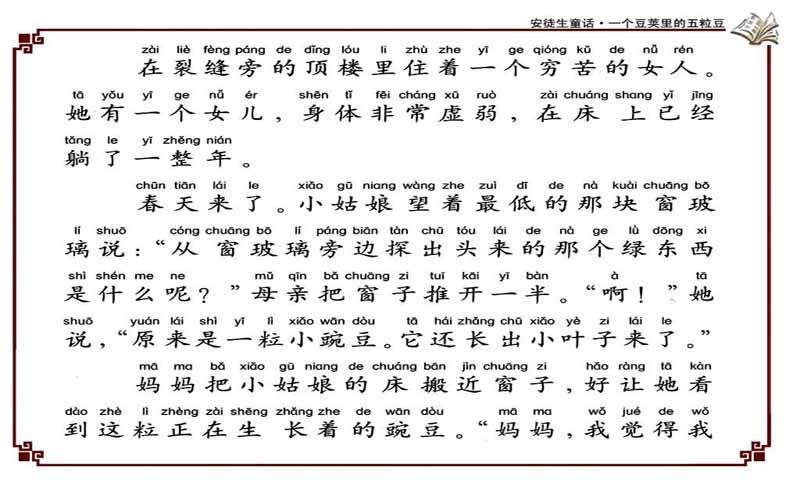 安徒生童话·一个豆荚里的五粒豆
zài liè fèng páng de dǐng lóu li zhù zhe yī ge qióng kǔ de nǚ rén
在裂缝旁的顶楼里住着一个穷苦的女人。
tā yǒu yī ge nǚ ér shēn tǐ fēi cháng xū ruò zài chuáng shang yǐ jīng
她有一个女儿，身体非常虚弱，在床上已经
tǎng le yī zhěng nián
躺了一整年。
chūn tiān lái le xiǎo gū niang wàng zhe zuì dī de nà kuài chuāng bō
春天来了。小姑娘望着最低的那块窗玻
lí shuō cóng chuāng bō lí páng biān tàn chū tóu lái de nà ge lǜ dōng xi
璃说：“从窗玻璃旁边探出头来的那个绿东西
shì shén me ne mǔ qīn bǎ chuāng zi tuī kāi yī bàn à tā
是什么呢？”母亲把窗子推开一半。“啊！”她
shuō yuán lái shì yī lì xiǎo wān dòu tā hái zhǎng chū xiǎo yè zi lái le
说，“原来是一粒小豌豆。它还长出小叶子来了。”
mā ma bǎ xiǎo gū niang de chuáng bān jìn chuāng zi hǎo ràng tā kàn
妈妈把小姑娘的床搬近窗子，好让她看
dào zhè lì zhèng zài shēng zhǎng zhe de wān dòu mā ma wǒ jué de wǒ
到这粒正在生长着的豌豆。“妈妈，我觉得我